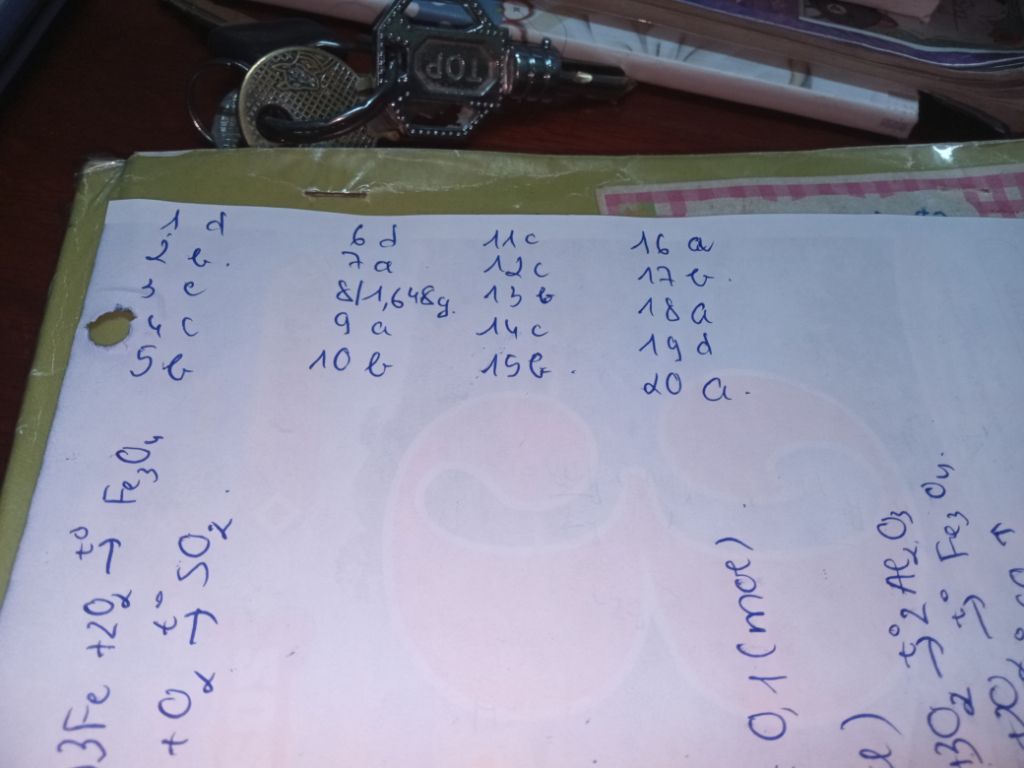 TOP
1 d
2 b.
3 c
4 c
5 b
6 d
7 a
8/1,648g.
9 a
10 b
11 c
12 c
13 b
14 c
15 b.
16 a
17 b.
18 a
19 d
20 a.
3Fe + 2O₂ →t° Fe₃O₄
+ O₂ →t° SO₂.
0,1 (mol)
+3O₂ →t° 2Al₂O₃
→t° Fe₃O₄.